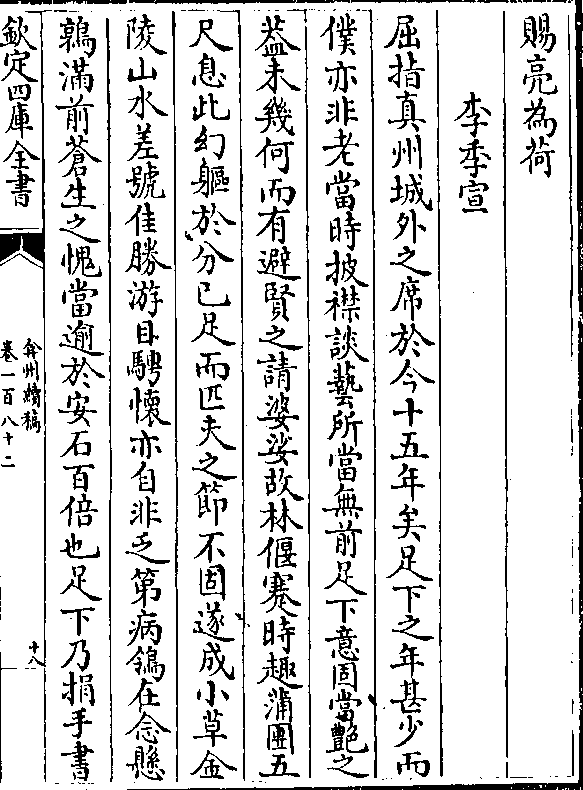 賜亮為荷
李季宣
屈指真州城外之席於今十五年矣足下之年甚少而
僕亦非老當時披襟談藝所當無前足下意固當艷之
葢未幾何而有避賢之請婆娑故林偃蹇時趣蒲團五
尺息此幻軀於分已足而匹夫之節不固遂成小草金
陵山水差號佳勝游目騁懷亦自非乏第病鴒在念懸
鶉滿前蒼生之愧當逾於安石百倍也足下乃捐手書
欽定四庫全書
弇州續稿
卷一百八十二
十八